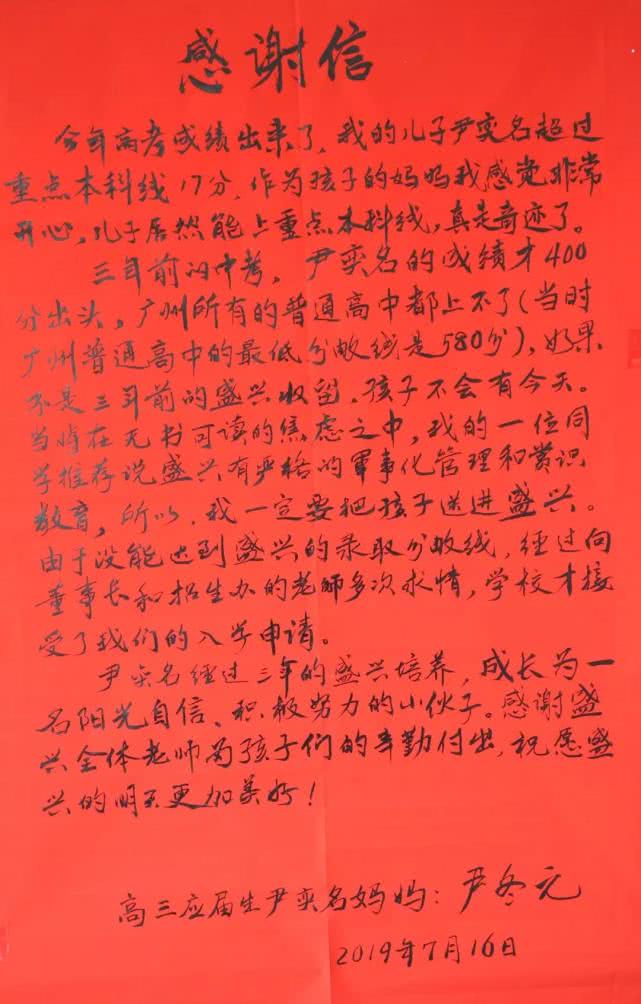 感谢信
今年高考成绩出来了，我的儿子尹奕名超过
重点本科线17分，作为孩子的妈妈我感觉非常
开心，儿子居然能上重点本科线，真是奇迹了。
三年前的中考，尹奕名的成绩才400
分出头，广州所有的普通高中都上不了（当时
广州普通高中的最低分数线是580分），如果
不是三年前的盛兴收留，孩子不会有今天。
当时在无书可读的焦虑之中，我的一位同
学推荐说盛兴有严格的军事化管理和赏识
教育，所以，我一定要把孩子送进盛兴。
由于没能达到盛兴的录取分数线，经过向
董事长和招生办的老师多次求情，学校才接
受了我们的入学申请。
尹奕名经过三年的盛兴培养，成长为一
名阳光自信、积极努力的小伙子。感谢盛
兴全体老师为孩子们的辛勤付出，祝愿盛
兴的明天更加美好！
高三应届生尹奕名妈妈：尹冬元
2019年7月16日